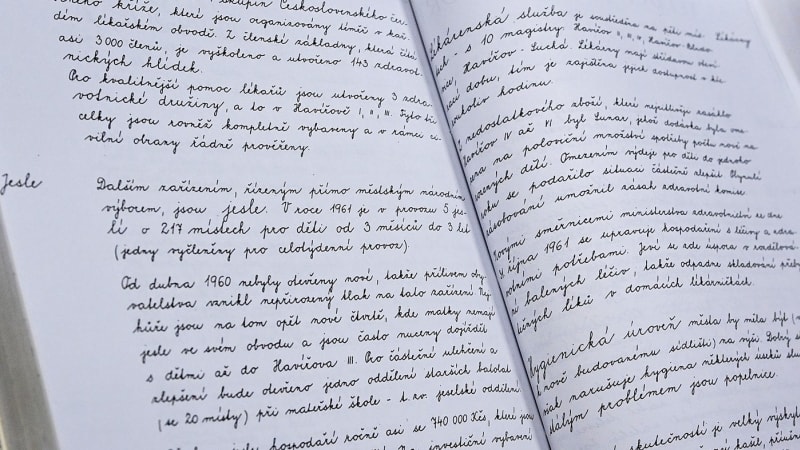 Československého čer-
ného kříže, které jsou organizovány téměř v kaž-
dém lékařském obvodě. Z členské základny, která čítá
asi 3 000 členů, je vyškoleno a utvořeno 143 zdravot-
nických hlídek.
Pro kvalitnější pomoc lékařů jsou utvořeny 3 zdra-
votnické družiny, a to v Havířově I, II, III. Tyto tři
celky jsou rovněž kompletně vybaveny a v rámci ci-
vilní obrany řádně prověřeny.
Jesle
Dalším zařízením, řízeným přímo městským národním
výborem, jsou jesle. V roce 1961 je v provozu 5 jes-
lí o 217 místech pro děti od 3 měsíců do 3 let
(jedny vyčleněny pro celotýdenní provoz).
Od dubna 1960 nebyly otevřeny nové, takže přílivem oby-
vatelstva vznikl nepřirozený tlak na tato zařízení. Nej-
hůře jsou na tom opět nové čtvrtě, kde matky nemají
jesle ve svém obvodu a jsou často nuceny dojíždět
s dětmi až do Havířova III. Pro částečné ulehčení a
zlepšení bude otevřeno jedno oddělení starších batolat
(se 20 místy) při mateřské škole - t. zv. jeselské oddělení.
hospodaří ročně asi se 740 000 Kčs, které jsou
investiční vybavení
Lékárenská služba je soustředěna na pěti mís. Lékárny
- s 10 magistry. Havířov I, II, III, Havířov-Bludo-
Havířov-Suchá. Lékárny mají stanovenu oteví-
rací dobu, tím je zajištěna jejich dostupnost v kte-
roukoliv hodinu.
Z nedostatkového zboží, které nejcitlivěji zasáhlo
Havířov IV až VI byl Sunar, jehož dodávka byla ome-
zena na poloviční množství spotřeby počtu nově na-
rozených dětí. Omezením výdeje pro děti do jednoho
roku se podařilo situaci částečně zlepšit. Plynulé
zásobování umožnil zásah zdravotní komise.
Novými směrnicemi ministerstva zdravotnictví ze dne
října 1961 se upravuje hospodaření s léčivy a zdra-
votními potřebami. Jeví se zde úspora v rozdělová-
ní balených léčiv, takže odpadne skladování přeby-
tečných léků v domácích lékárničkách.
Hygienická úroveň města by měla být (v
nově budovanému sídlišti) na výši. Dobrý s
však narušuje hygiena některých úseků slu
stálým problémem jsou popelnice.
skutečností je velký výskyt
kašel, příušnice